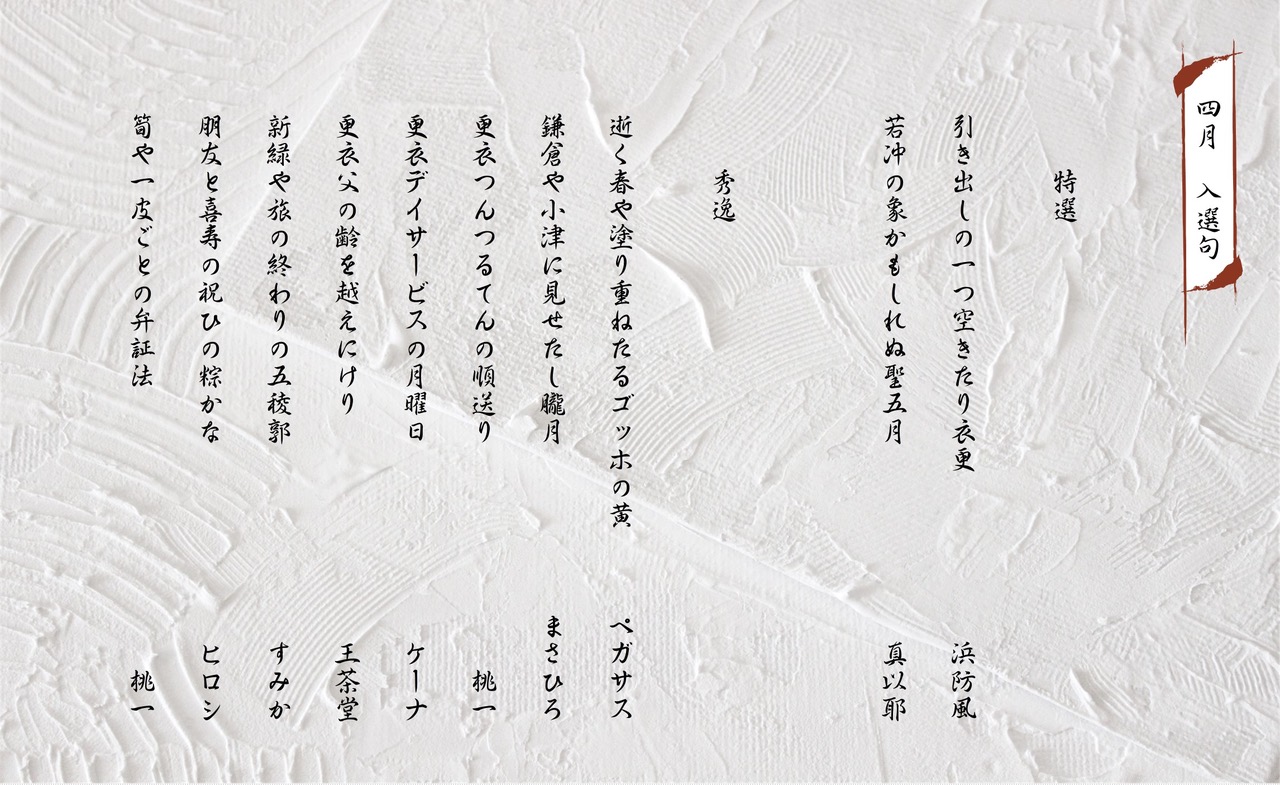 四月　入選句
特選
引き出しの一つ空きたり衣更　浜防風
若沖の象かもしれぬ聖五月　真以耶
秀逸
逝く春や塗り重ねたるゴッホの黄　ペガサス
鎌倉や小津に見せたし朧月　まさひろ
更衣つんつるてんの順送り　桃一
更衣デイサービスの月曜日　ケーナ
更衣父の齢を越えにけり　王茶堂
新緑や旅の終わりの五稜郭　すみか
朋友と喜寿の祝ひの粽かな　ヒロシ
筍や一皮ごとの弁証法　桃一